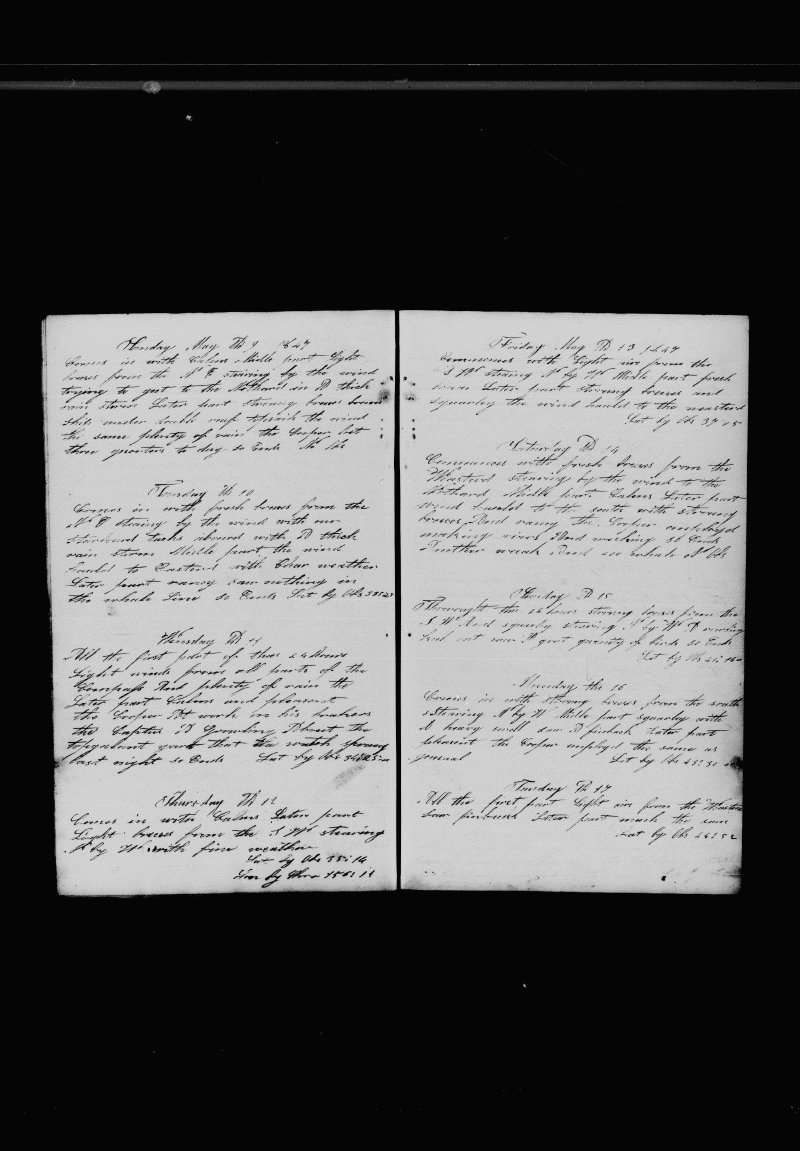 Monday May Th 9 1847
Comes in with Calms Midle part Light
breses from the N E stearing by the wind
trying to get to the Nothard in A thick
rain storm Later part strong breses
ship under double reef topsails the wind
the same plenty of rain the Cooper lost
three quarters to day so Ends No Obs
Tuesday Th 10
Comes in with fresh breses from the
N E stearing by the wind with our
starboard tacks aboard with A thick
rain storm Midle part the wind
hauld to Eastard with Clear weather
Later part rainy saw nothing in
the whale Line so Ends Lat by Obs
Wensday Th 11
All the first part of thes 24 hours
Light winds from all parts of the
Compass And plenty of rain the
Later part Calms and pleasent
the Cooper At work in his
the Captin A Growling About the
topgalant yard that the watch sprung
last night so Ends Lat by Obs
Thursday Th 12
Comes in with Calms Later part
Light breses from the S W stearing
N by W with fine weather
Lat by Obs 35:14
Lon by
Friday May Th 13 1847
Commences with Light air from the
S W stearing N by W Midle part fresh
breses Later part strong breses and
squarly the wind hauld to the westard
Lat by Obs 37 05
Saturday Th 14
Commences with fresh breses from the
Westard stearing by the wind to the
Nothard Midle part Calms Later part
wind hauld to the south with strong
breses And rainy The Cooper employd
making rivets And so Ends
Another weak And no whale N Obs
Sunday Th 15
Throwought the 24 hours strong breses from the
S W And squarly stearing N by W A runing
saw A grat quantity of birds so Ends
Lat by Obs
Munday the 16
Comes in with strong breses from the south
stearing N by W Midle part squarly with
A heavy swell saw A finback Later part
pleasent the Cooper employd the same as
general Lat by Obs 43:30
Tuesday Th 17
All the first part Light air from the Westard
saw finbacks Later part much the same
Lat by Obs